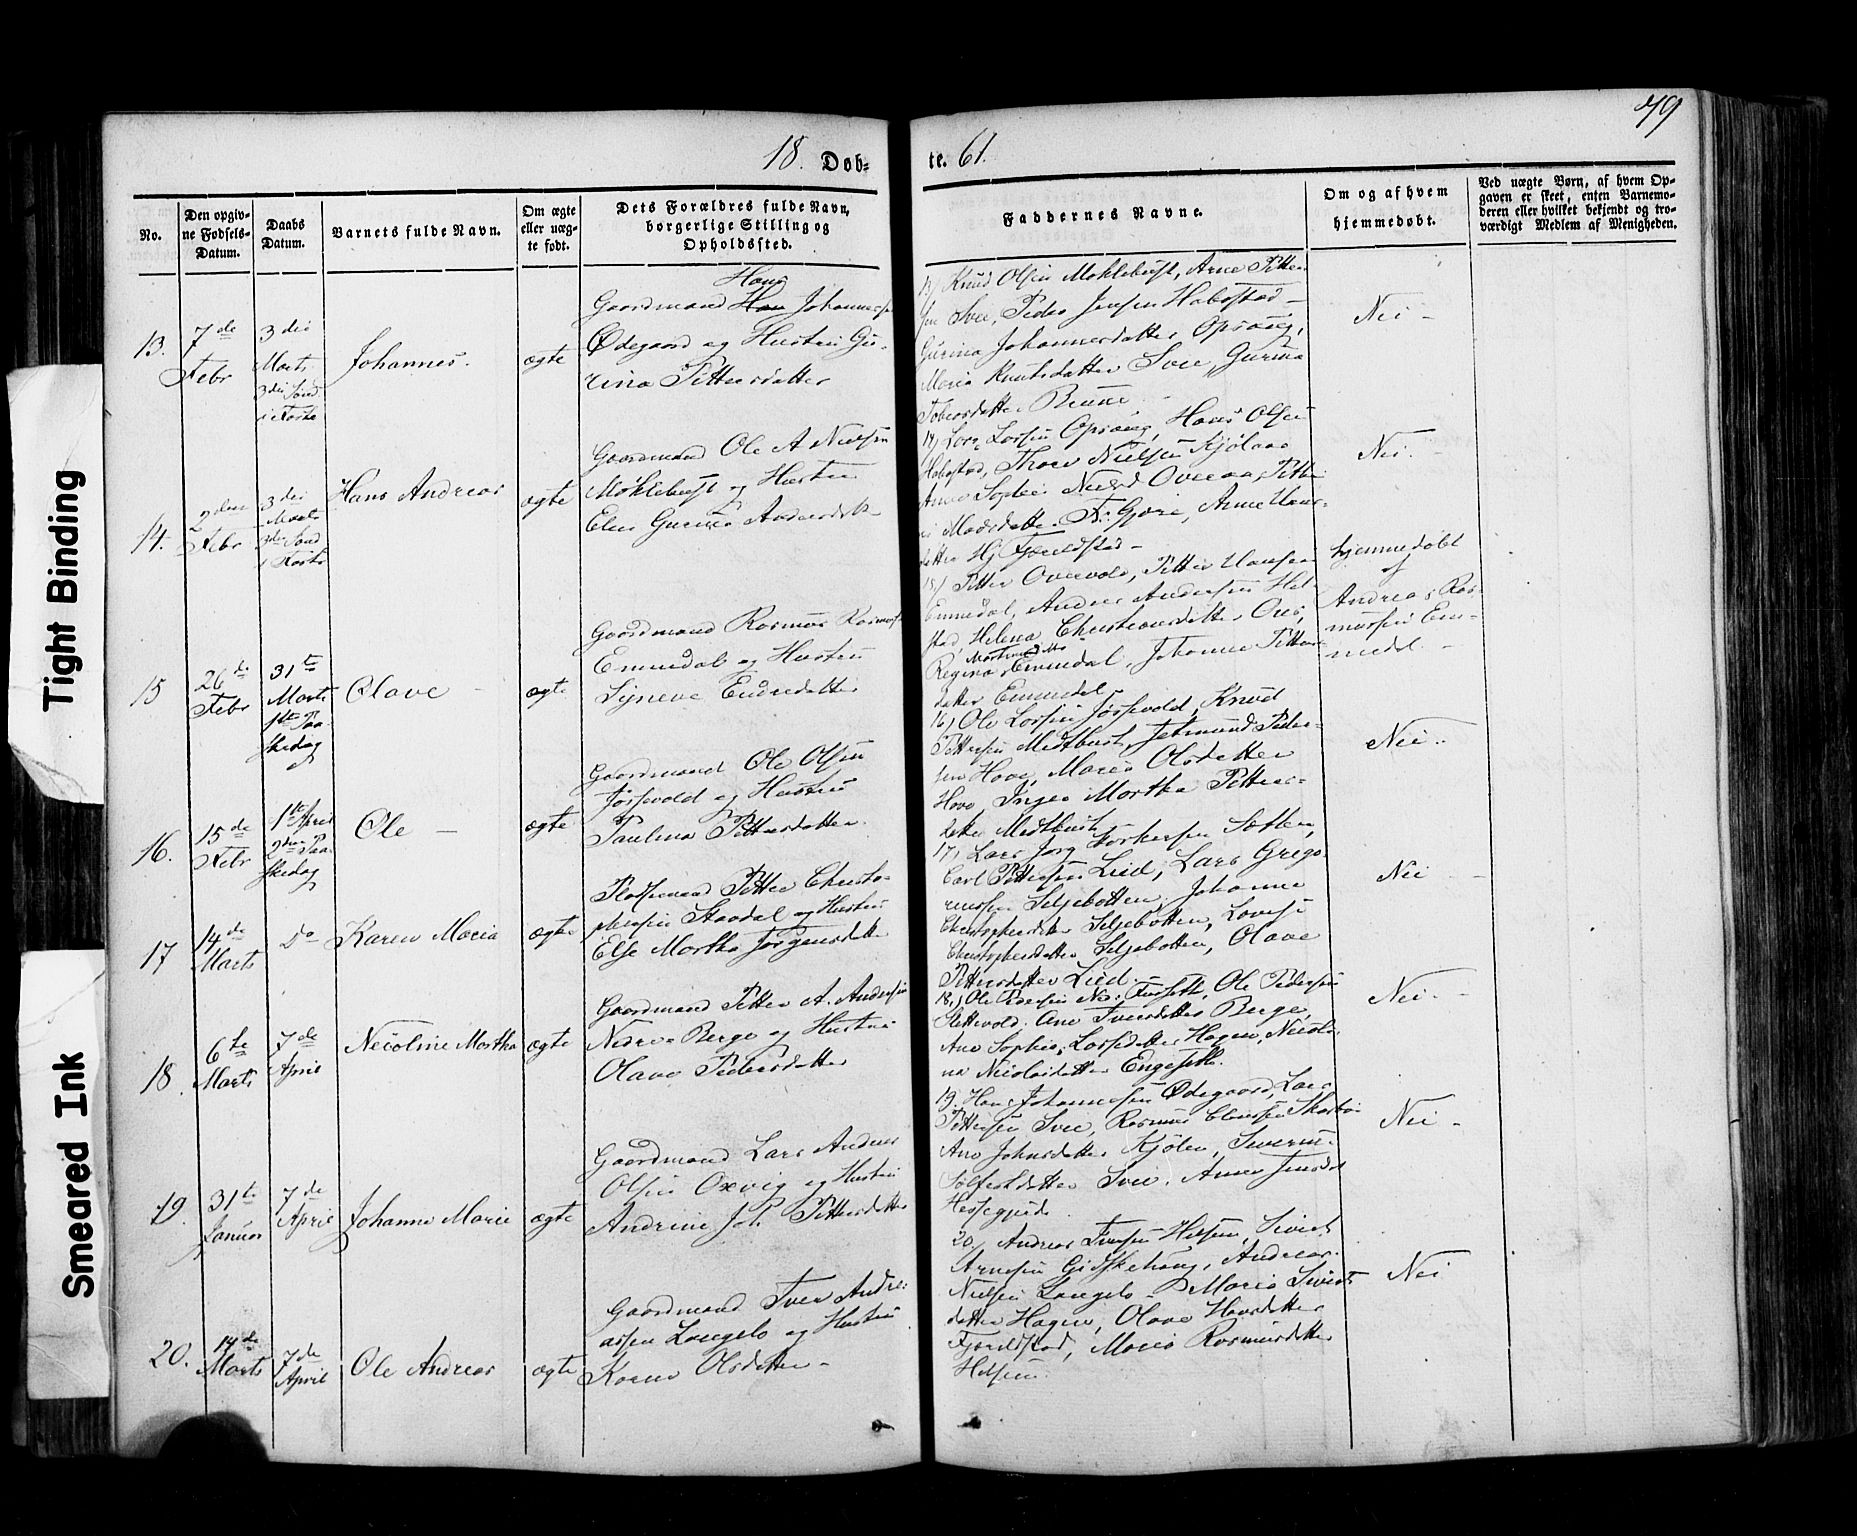 79
18. Døb-
te. 61.
No.
Den opgiv-
ne Fødsels-
Datum.
Daabs
Datum.
Barnets fulde Navn.
Om ægte
eller uæg-
te født.
Dets Forældres fulde Navn,
borgerlige Stilling og
Opholdssted.
Faddernes Navne.
Om og af hvem
hjemmedøbt.
Ved uægte Børn, af hvem Op-
gaven er skeet, enten Barnemo-
deren eller hvilket bekjendt og tro-
værdigt Medlem af Menigheden.
13.
7de
Febr
3die
Marts
3die Sønd
i Faste
Johannes.
ægte
Hans
Gaardmand Han Johannes
Ødegaard og Hustru Gu-
rina Pettersdatter
13, Knud Olsen Moklebust, Arne Petter
sen Svee, Peder Jensen Habostad
Gurina Johannesdatter Opsang,
Maria Knutsdatter Svee, Gurina
Tobiasdatter Brune
Nei
14.
2den
Febr
3die
Marts
3die Sønd
i Faste
Hans Andreas
ægte
Gaardmand Ole A Nielsen
Møklebust og Hustru
Elen Gurina Andersdtr
14, Lars Larsen Opsang, Hans Olsen
Habostad, Thore Nielsen Kjølaas
Anne Sophie Nielsd Overaa, Petri-
ne Madsdatter Gjøre, Anne Hans-
datter Hj. Fjørestad
Nei.
15
26de
Febr
31te
Marts
1ste Paa-
skedag
Olave
ægte
Gaardmand Rasmus Rasmuss
Emmedal og Hustru
Synneve Endredatter
15, Petter Overvold, Petter Hansen
Emmedal, Andreas Andersen Hel-
stad, Helena Christiansdatter Ous,
Regina Emmedal, Johanne Petters-
datter Emmedal
hjemmedøbt
af
Andreas Ras-
mussen Em-
medal.
16.
15de
Febr
1ste April
2den Paa-
skedag
Ole
ægte
Gaardmand Ole Olsen
Jørsevold og Hustru
Paulina Pettersdatter.
16, Ole Larsen Jørsevold, Knud
Pettersen Medtbust, Jetmund Peder-
sen Hove, Maria Olsdatter
Hove, Inger Martha Petters-
datter Medtbust
Nei.
17
14de
Marts
Do
Karen Maria
ægte
Pladsmand Petter Christo-
phersen Standal og Hustru
Else Martha Jørgensdatter
17, Lars Jørg Torkersen Sætter,
Carl Pettersen Lied, Lars Grego-
riussen Seljebotten, Johanne
Christophersdatter Seljebotten, Lovise
Christophersdatter Seljebotten, Olave
Pettersdatter Lied.
Nei
18.
6te
Marts
7de
April
Nicoline Martha
ægte
Gaardmand Petter A. Andersen
Nedre Berge og Hustru
Olave Pedersdatter
18, Ole Larsen Ole Pedersen
Slettevold, Ane Iversdatter Berge,
Ane Sophie Larsdatter Hagen, Nicoli-
na Nicolaidatter Engeseth.
Nei.
19.
31te
Januar
7de
April
Johanne Marie
ægte
Gaardmand Lars Andreas
Olsen Oxvig og Hustru
Andrine Joh. Pettersdatter
19, Hans Johannesen Ødegaard, Lars
Pettersen Svee, Rasmus Clausen
Ane Johnsdatter Kjølen, Severine
Sølfestdatter Svee, Anne Jensdtr
Hessegjerde.
Nei
20.
14de
Marts
7de
April
Ole Andreas
ægte
Gaardmand Iver Andre-
assen Langelo og Hustru
Karen Olsdatter
20, Andreas Iversen Helsem, Sivert
Arnesen Gidskehaug, Andreas
Nielsen Langelo, Maria Siverts
datter Hagen, Olave Hansdatter
Fjørestad, Maria Rasmusdatter
Helsem.
Nei
Tight Binding
Smeared Ink